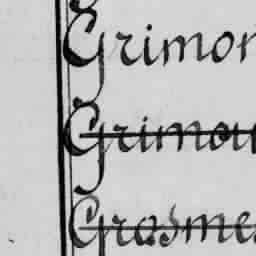 Grimon
Grimou
Grasme